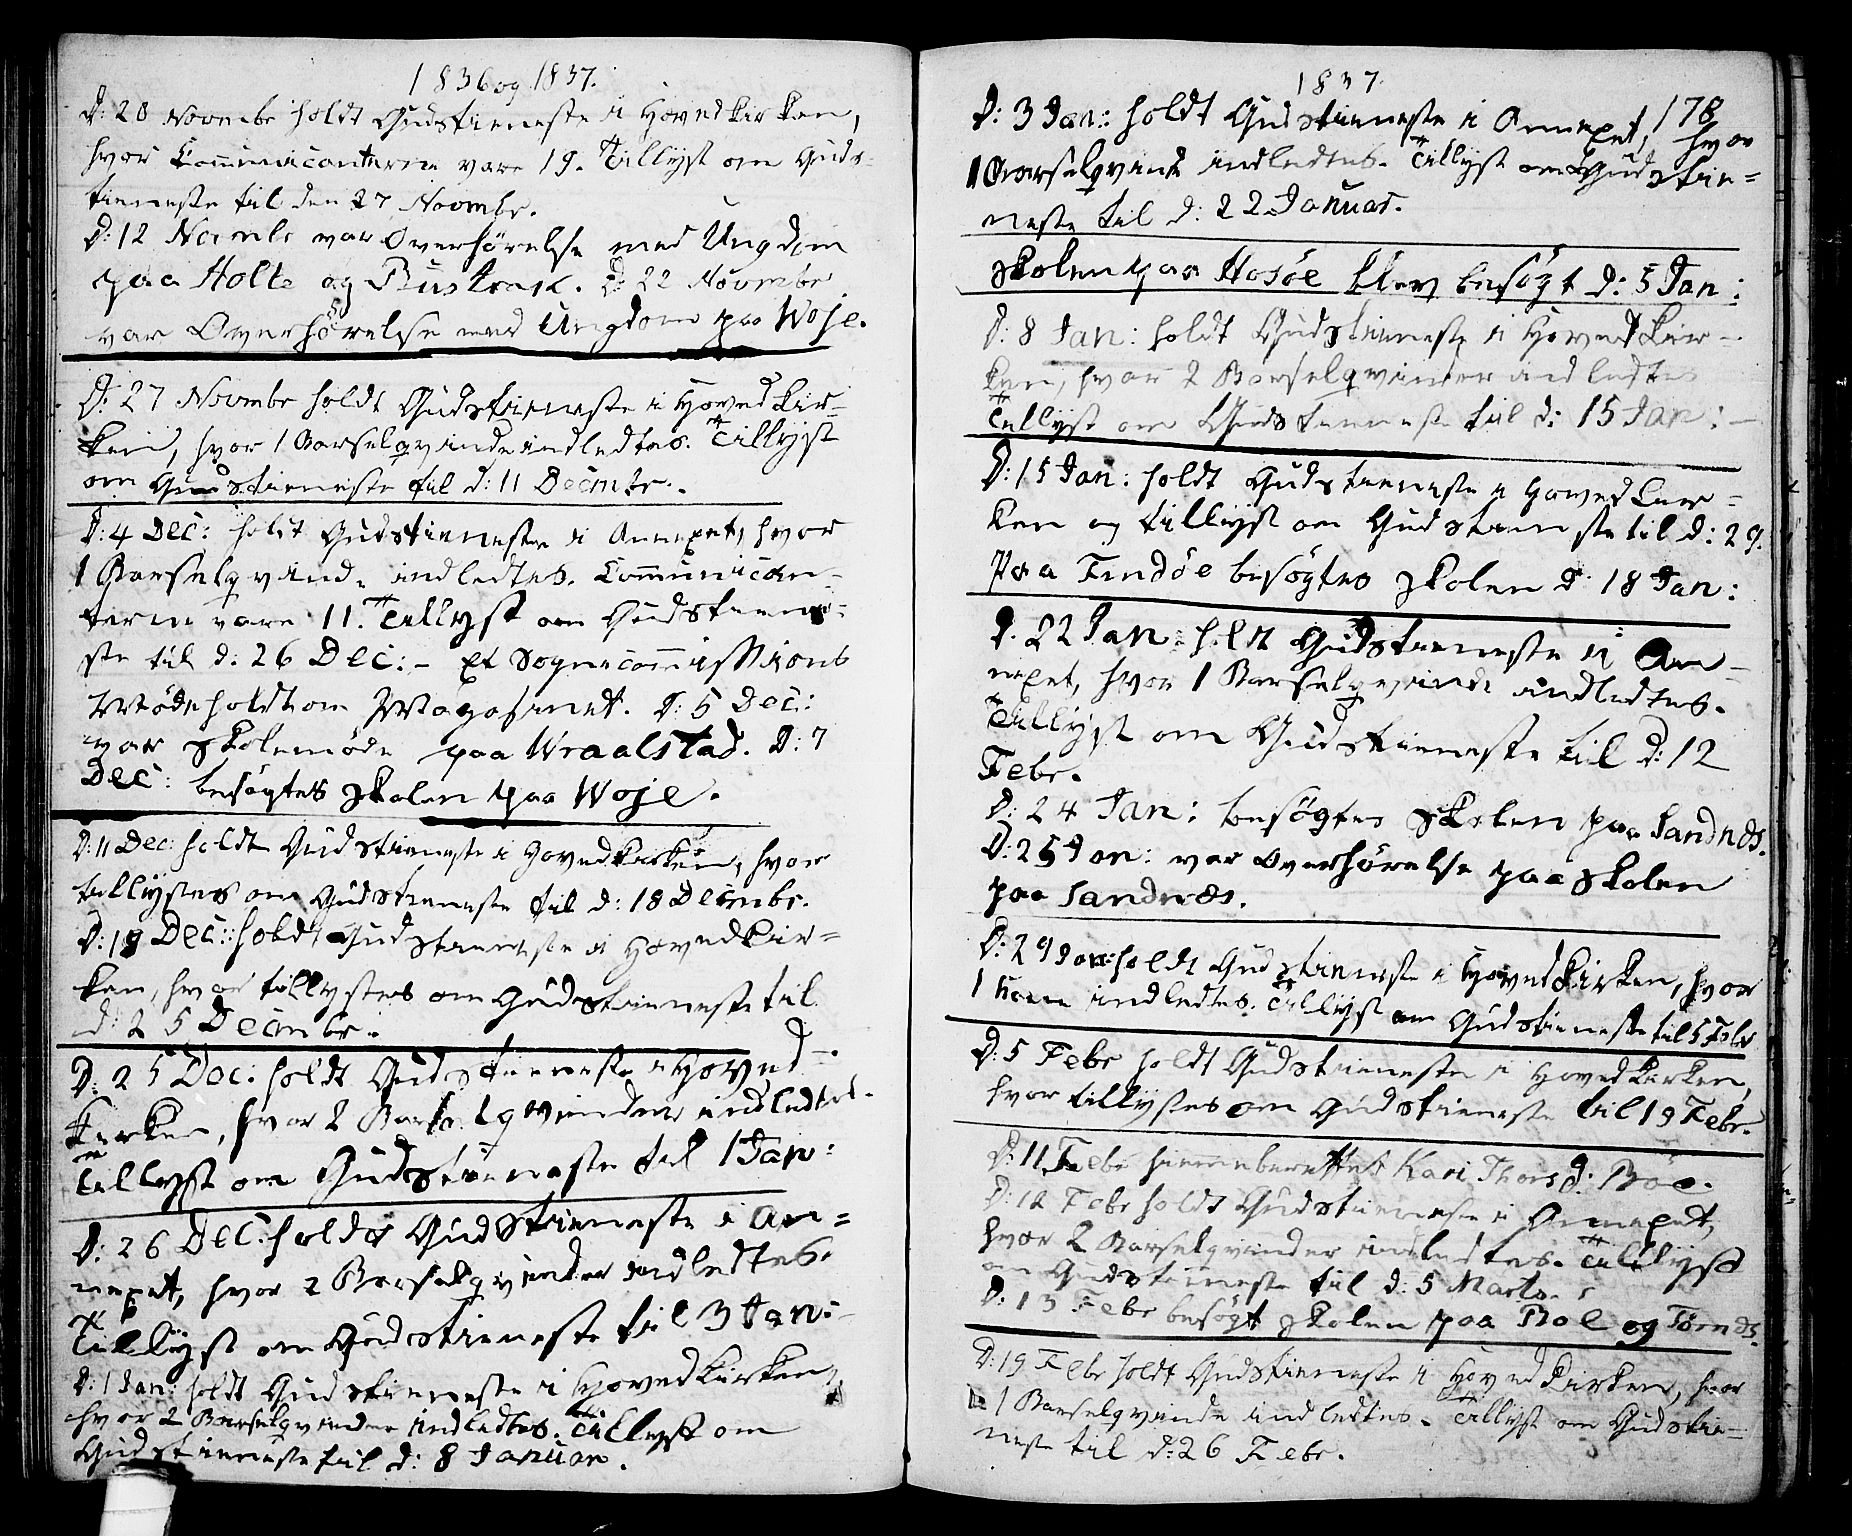 1836 og 1837.
D: 20 Novmbr holdt Gudstieneste i Hovedkirken,
hvor Communicanterne vare 19. Tillyst om Guds-
tieneste til den 27 Novmbr.
D: 12 Novmbr var Overhørelse med Ungdom
paa Holte og D: 22 Novmbr
var Overhørelse med Ungdom paa Woje.
D: 27 Novmbr holdt Gudstieneste i Hovedkir-
ken, hvor 1 Barselqvinde indledtes. Tillyst
om Gudstieneste til d: 11 Decmbr.
D: 4 Dec: holdt Gudstieneste i Annexet, hvor
1 Barselqvinde indledtes. Communican-
terne vare 11. Tillyst om Gudstiene-
ste til d: 26 Dec: - Et Sognecommissions
Møde holdt om Magasinet. D: 5 Dec:
var Skolemøde paa Wraalstad. D: 7
Dec: besøgtes Skolen paa Woje.
D: 11 Dec: holdt Gudstieneste i Hovedkirken, hvor
tillystes om Gudstieneste til d: 18 Decmbr.
D: 18 Dec: holdt Gudstieneste i Hovedkir=
ken, hvor tillystes om Gudstieneste til
d: 25 Decmbr.
D: 25 Dec: holdt Gudstieneste i Hoved-
kirken, hvor 2 Barselqvinder indledtes.
Tillyst om Gudstieneste til 1 Jan:
D: 26 Dec: holdt Gudstieneste i An=
nexet, hvor 2 Barselqvinder indledtes.
Tillyst om Gudstieneste til 3 Jan:
D: 1 Jan: holdt Gudstieneste i Hovedkirken,
hvor 2 Barselqvinder indledtes. Tillyst om
Gudstieneste til d: 8 Januar.
1837.
178
D: 3 Jan: holdt Gudstieneste i Annexet, hvor
1 Barselqvinde indledtes. Tillyst om Gudstie=
neste til d: 22 Januar.
Skolen paa Hosøe blev besøgt d: 5 Jan:
D: 8 Jan: holdt Gudstieneste i Hovedkir-
ken, hvor 2 Barselqvinder indledtes
Tillyst om Gudstieneste til d: 15 Jan: -
D: 15 Jan: holdt Gudstieneste i Hovedkir=
ken og tillyst om Gudstieneste til d: 29.
Paa Findøe besøgtes Skolen d: 18 Jan:
D. 22 Jan: holdt Gudstieneste i An-
nexet, hvor 1 Barselqvinde indledtes.
Tillyst om Gudstieneste til d: 12
Febr.
D: 24 Jan: besøgtes Skolen paa Sandnæs.
D: 25 Jan: var Overhørelse paa Skolen
paa Sandnæs.
D: 29 Jan: holdt Gudstieneste i Hovedkirken, hvor
1 Kone indledtes. Tillyst om Gudstieneste til 5 Febr
D: 5 Febr holdt Gudstieneste i Hovedkirken,
hvor tillystes om Gudstieneste til 19 Febr.
D: 11 Febr hiemmeberettet Kari Thorsd: Böe.
D: 12 Febr holdt Gudstieneste i Annexet,
hvor 2 Barselqvinder indledtes. Tillyst
om Gudstieneste til d: 5 Marts.
D: 13 Febr besøgt Skolen paa Bol og Tørnæs.
D: 19 Febr holdt Gudstieneste i Hovedkirken, hvor
1 Barselqvinde indledtes. Tillyst om Gudstie-
neste til d: 26 Febr.